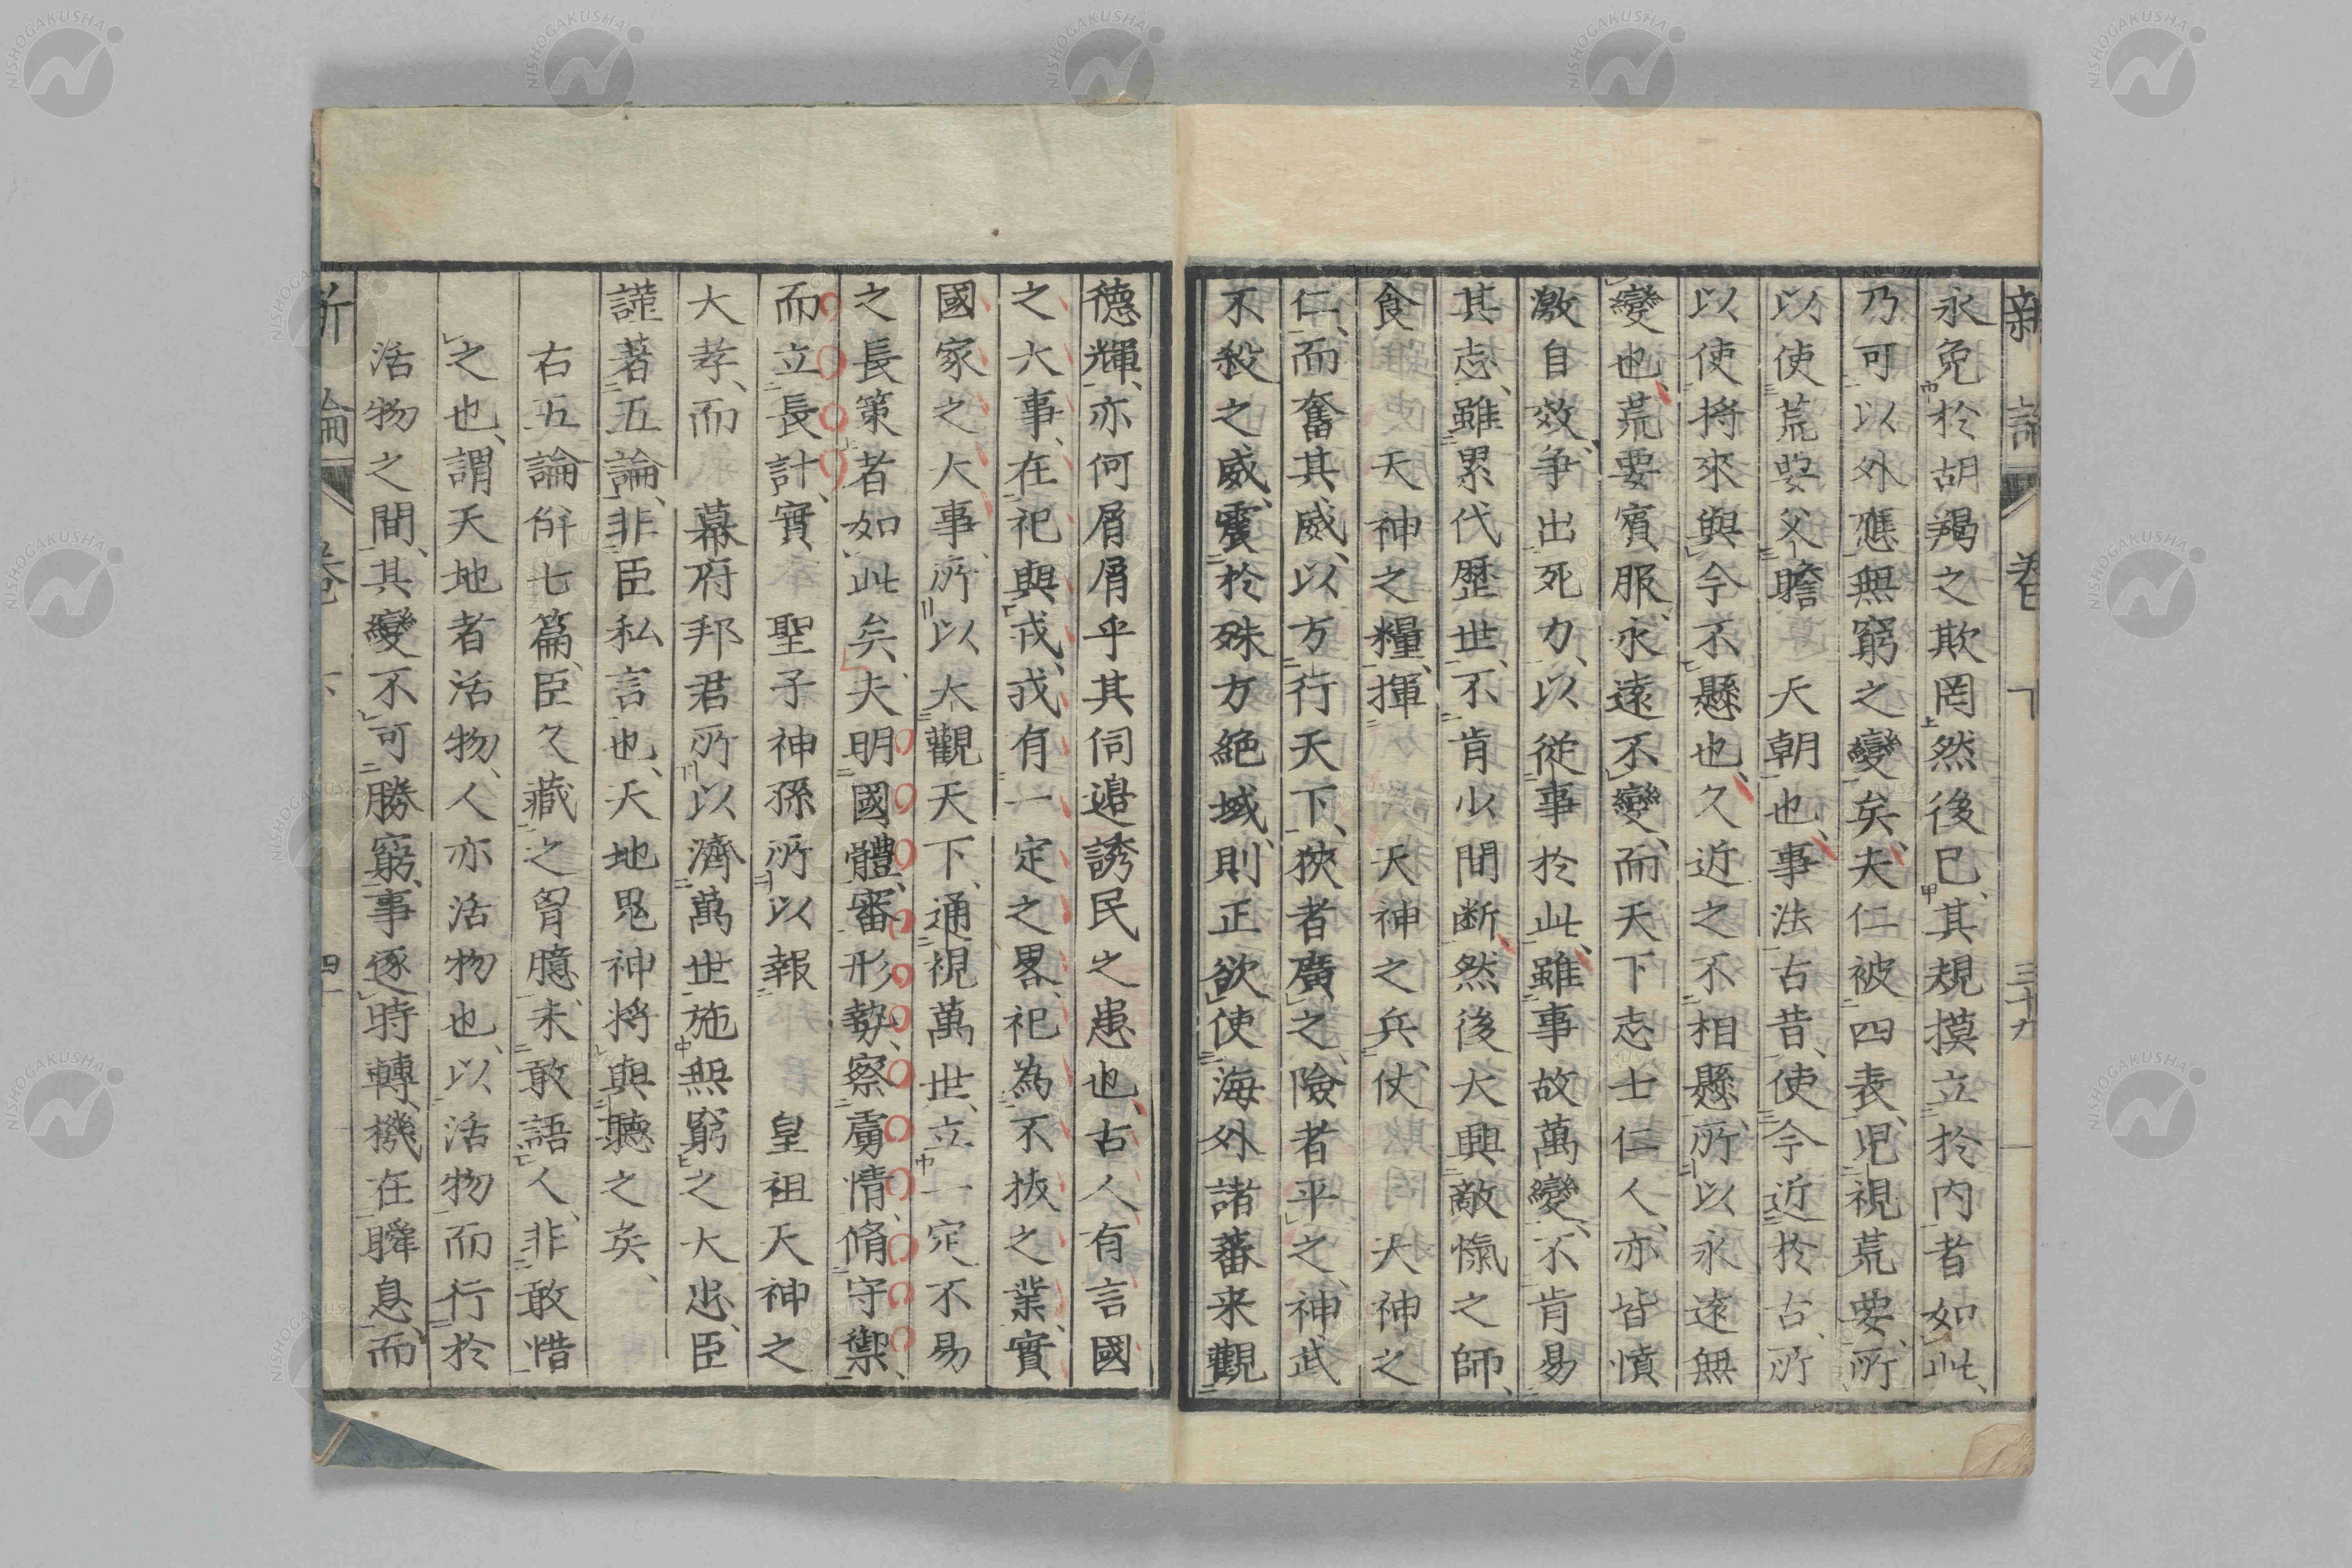 新論 卷 下 三十九
永免於胡羯之欺罔然後已、其規摸立於内者如此、
乃可以外應無窮之變矣、夫仁被四表、児視荒要、所
以使荒要父瞻 天朝也、事法古昔、使今近於古、所
以使將來與今不懸也、久近之不相懸、所以永遠無
變也、荒要賓服、永遠不變、而天下志士仁人、亦皆憤
激自效、争出死力、以從事於此、雖事故萬變、不肯易
其志、雖累代歴世、不肯少間断、然後大興敵愾之師、
食 天神之糧、揮 天神之兵、仗 天神之
仁、而奮其威、以方行天下、狹者廣之、險者平之、神武
不殺之威、震於殊方絶域、則正欲使海外諸蕃来觀
德輝、亦何屑屑乎其伺邉誘民之患也、古人有言國
之大事、在祀與戎、戎有一定之畧、祀為不拔之業、實
國家之大事、所以大觀天下、通視萬世、立一定不易
之長策者如此矣、夫明國體、審形勢、察虜情、脩守禦、
而立長計、實 聖子神孫所以報 皇祖天神之
大孝、而 幕府邦君所以濟萬世施無窮之大忠、臣
謹著五論、非臣私言也、天地鬼神將與聽之矣、
右五論併七篇、臣久藏之胷臆、未敢語人、非敢惜
之也、謂天地者活物、人亦活物也、以活物而行於
活物之間、其變不可勝窮、事逐時轉、機在瞬息、而
新論 卷 下 四一
NISHOGAKUSHA